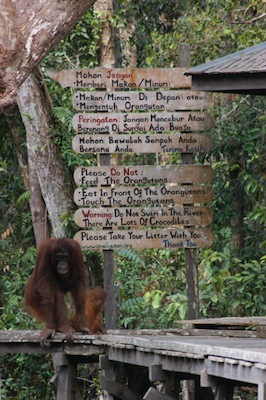 Mohon Jangan
Memberi Makan/Minum
Makan/Minum Di Depan atau
Menyentuh Orangutan
Peringatan: Jangan Mencebur Atau
Berenang Di Sungai Ada Buaya
Mohon Bawalah Sampah Anda
Bersama Anda Terima Kasih
Please Do Not
Feed The Orangutans
Eat In Front Of The Orangutans
Touch The Orangutans
Warning Do Not Swim In The River
There Are Lots Of Crocodiles
Please Take Your Litter With You
Thank You